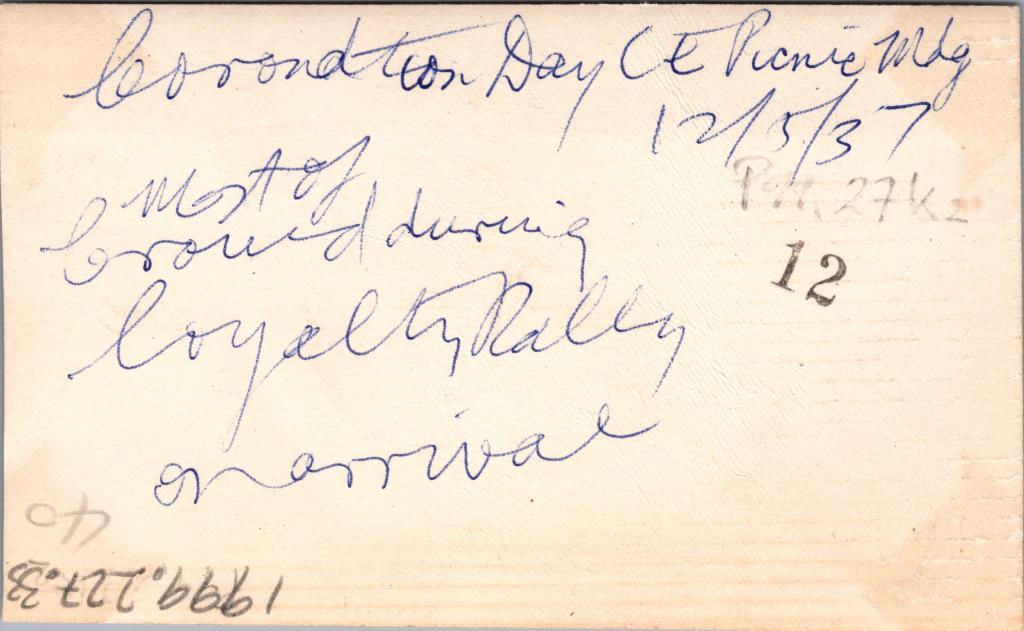 Coronation Day CE Picnic Mdg
12/5/37
Most of
Crowd during
Loyalty Rally
on arrival
12
40
1999.227.33